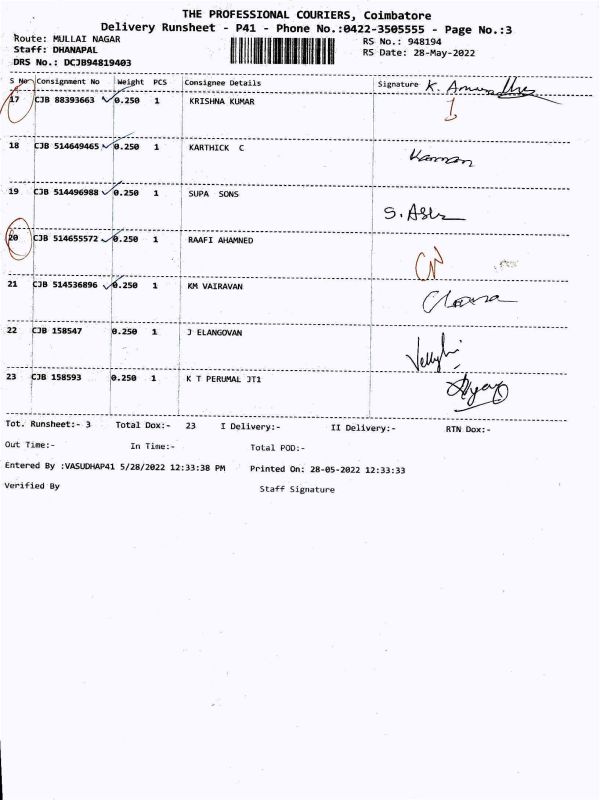 THE PROFESSIONAL COURIERS, Coimbatore
Delivery Runsheet - P41 - Phone No.:0422-3505555 - Page No.:3
Route: MULLAI NAGAR RS No.: 948194
Staff: DHANAPAL RS Date: 28-May-2022
DRS No.: DCJB94819403
S No Consignment No Weight PCS Consignee Details Signature
17 CJB 88393663 0.250 1 KRISHNA KUMAR
18 CJB 514649465 0.250 1 KARTHICK C
Kannan
19 CJB 514496988 0.250 1 SUPA SONS
20 CJB 514655572 0.250 1 RAAFI AHAMNED
CN
21 CJB 514536896 0.250 1 KM VAIRAVAN
22 CJB 158547 0.250 1 J ELANGOVAN
23 CJB 158593 0.250 1 K T PERUMAL JT1
Tot. Runsheet:- 3 Total Dox:- 23 I Delivery:- II Delivery:- RTN Dox:-
Out Time:- In Time:- Total POD:-
Entered By :VASUDHAP41 5/28/2022 12:33:38 PM Printed On: 28-05-2022 12:33:33
Verified By Staff Signature